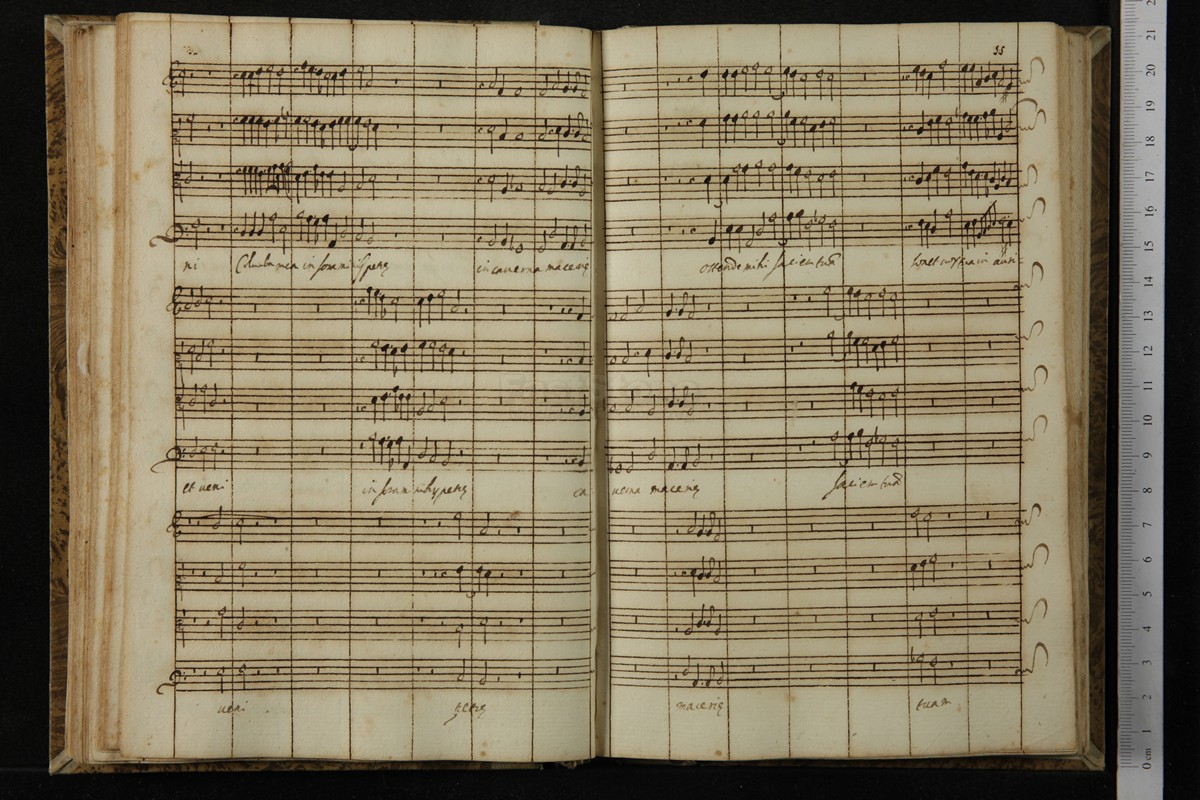 35
ni Columba mea in foraminibus petrę in caverna macerię ostende mihi faciem tuā sonet vox tua in auri-
et veni in foraminibus petrę ca verna macerię faciem tuā
veni petrę macerię tuam
0 cm 1 2 3 4 5 6 7 8 9 10 11 12 13 14 15 16 17 18 19 20 21